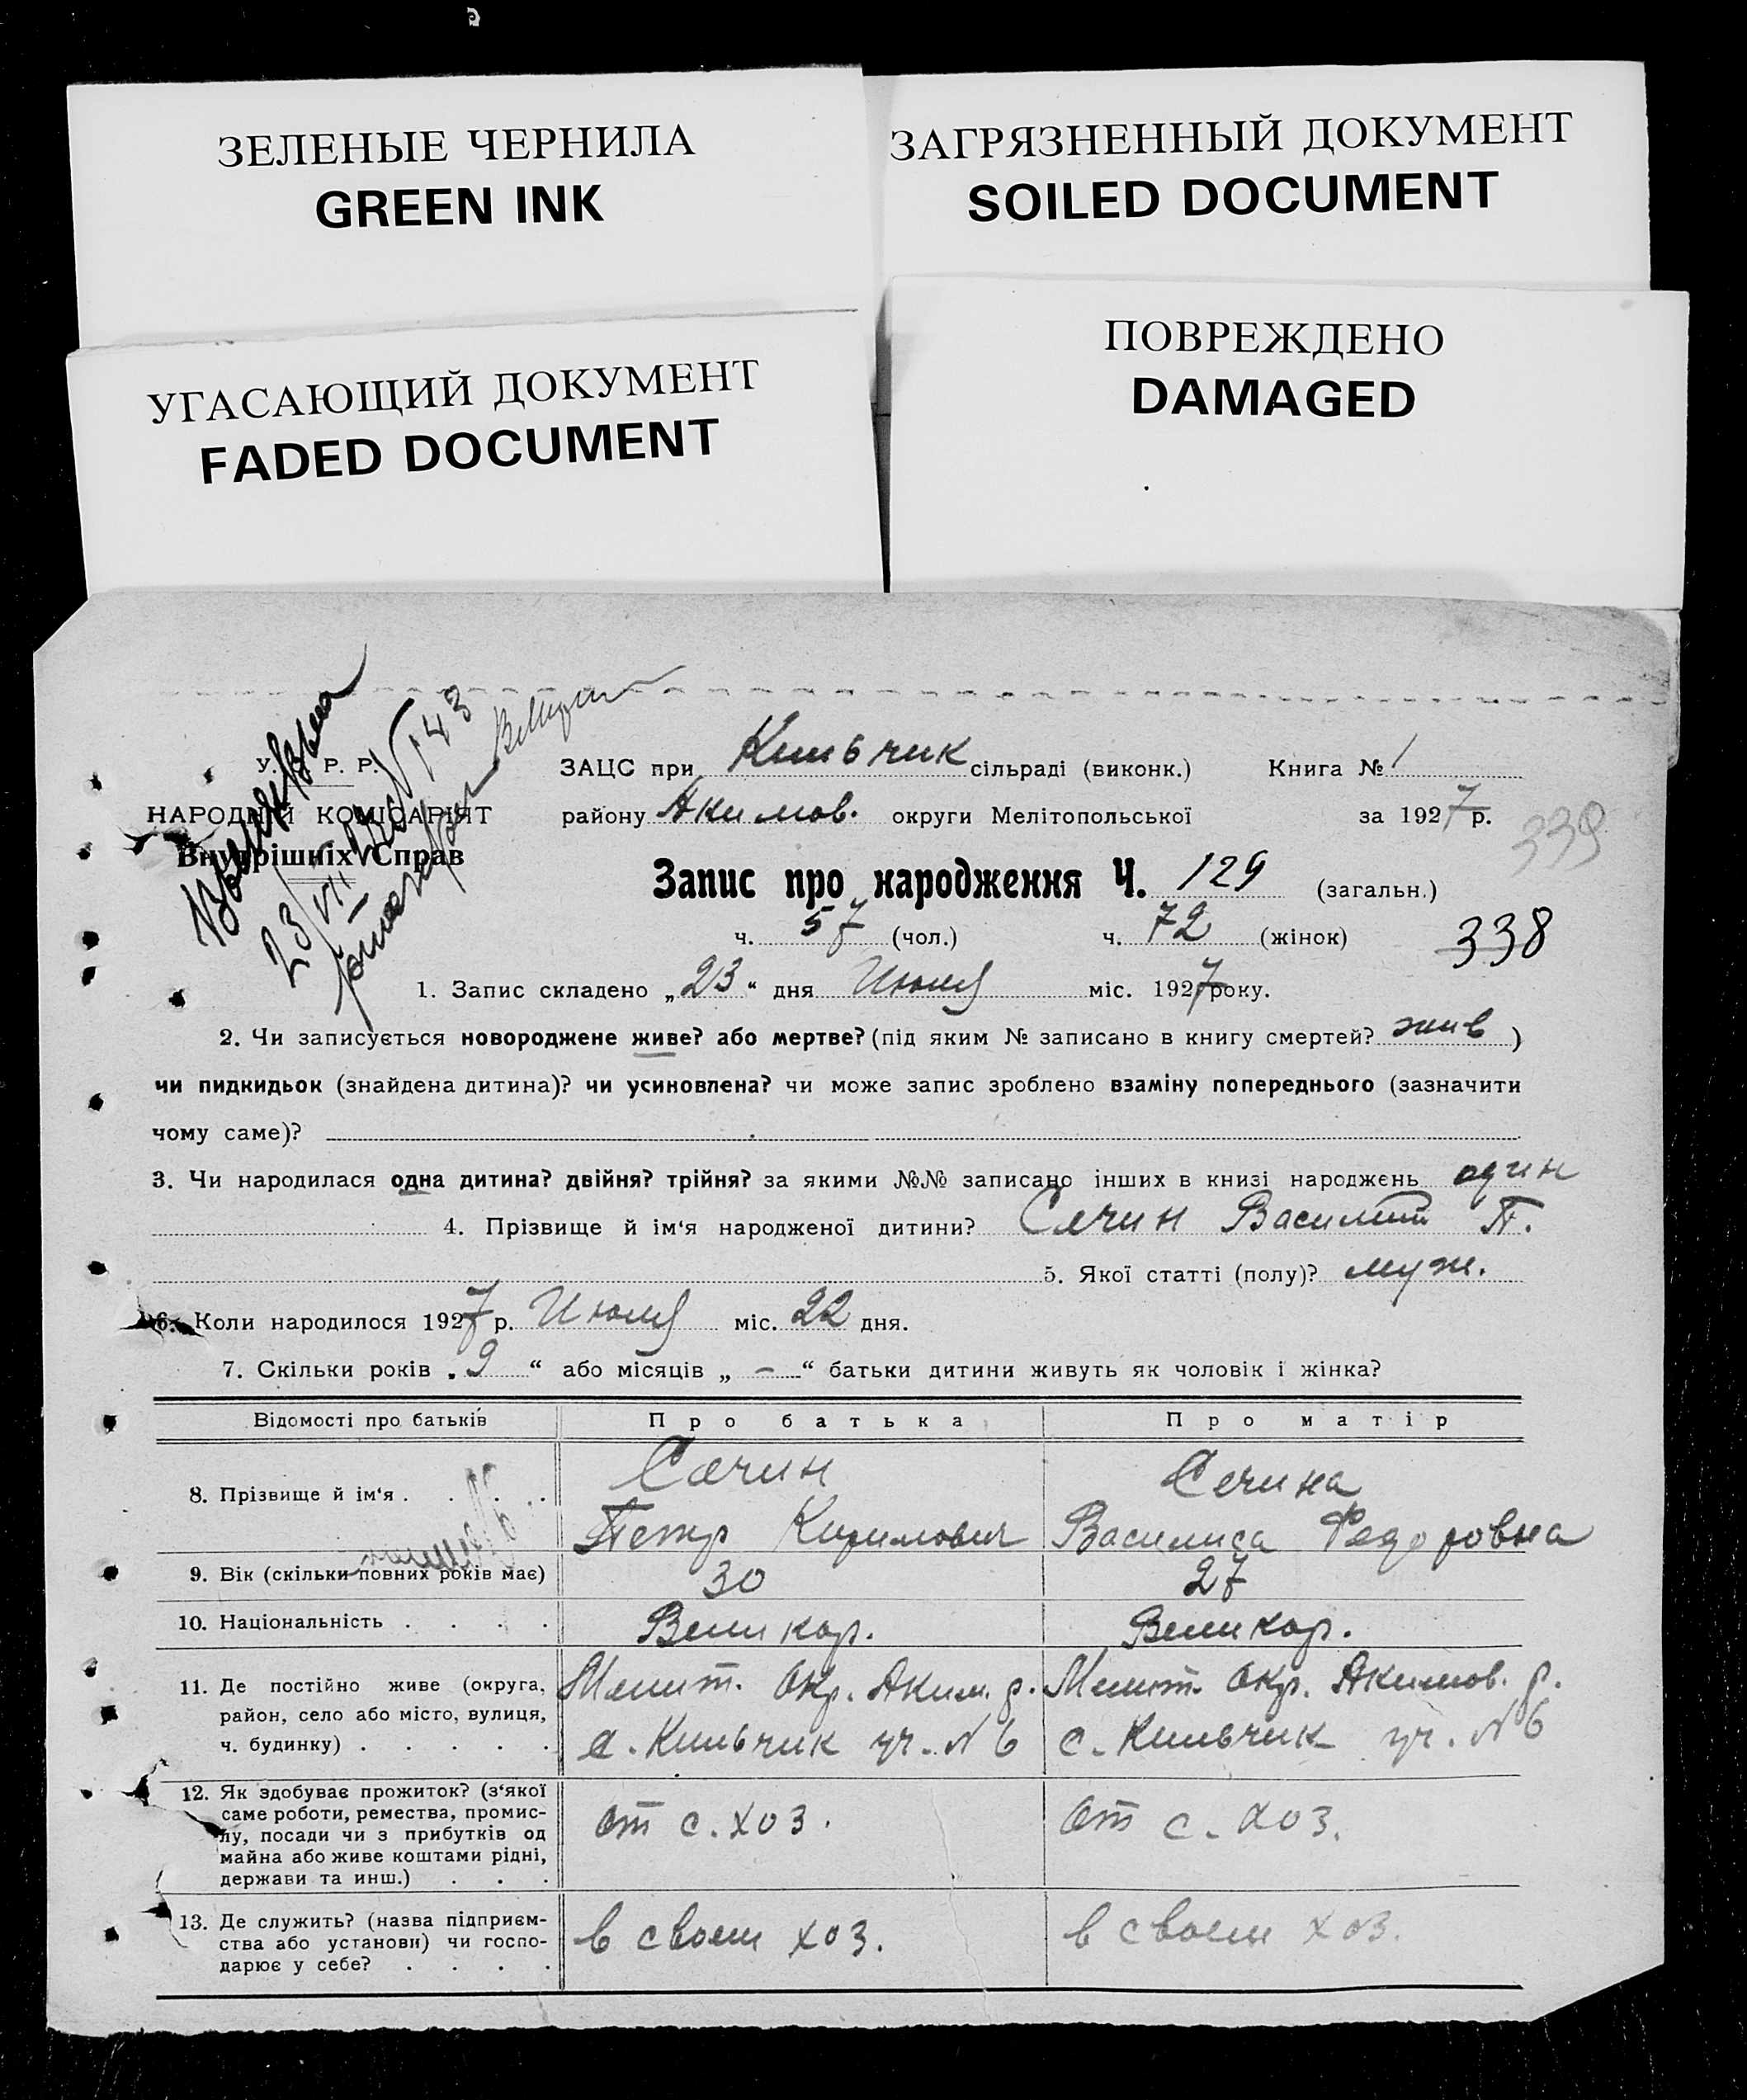 ЗЕЛЕНЫЕ ЧЕРНИЛА
GREEN INK
ЗАГРЯЗНЕННЫЙ ДОКУМЕНТ
SOILED DOCUMENT
УГАСАЮЩИЙ ДОКУМЕНТ
FADED DOCUMENT
ПОВРЕЖДЕНО
DAMAGED
У. Р. Р.
НАРОДНІЙ КОМІСАРІЯТ
Внутрішніх Справ
23/VII 143
ЗАЦС при Кильчик сільраді (виконк.) Книга № 1
району Акимов. округи Мелітопольської за 1927 р.
339
Запис про народження Ч. 129 (загальн.)
ч. 57 (чол.) ч. 72 (жінок)
338
1. Запис складено „23“ дня Июля міс. 1927 року.
2. Чи записується новороджене живе? або мертве? (під яким № записано в книгу смертей? жив )
чи пидкидьок (знайдена дитина)? чи усиновлена? чи може запис зроблено взаміну попереднього (зазначити
чому саме)?
3. Чи народилася одна дитина? двійня? трійня? за якими №№ записано інших в книзі народжень один
4. Прізвище й ім‘я народженої дитини? Сечин Василий П.
5. Якої статті (полу)? муж.
6. Коли народилося 1927 р. Июля міс. 22 дня.
7. Скільки років „9“ або місяців „ – “ батьки дитини живуть як чоловік і жінка?
Відомості про батьків Про батька Про матір
8. Прізвище й ім‘я . . . .
Сечин
Петр Кирилович
Сечина
Василиса Федоровна
9. Вік (скільки повних років має) 30 27
10. Національність . . . . Великор. Великор.
11. Де постійно живе (округа,
район, село або місто, вулиця,
ч. будинку) . . . . .
Мелит. Окр. Аким. р.
с. Кильчик уч. N 6
Мелит. Окр. Акимов. р.
с. Кильчик уч. N 6
12. Як здобуває прожиток? (з‘якої
саме роботи, ремества, промис-
лу, посади чи з прибутків од
майна або живе коштами рідні,
держави та инш.) . . .
от с. хоз.
от с. хоз.
13. Де служить? (назва підприєм-
ства або установи) чи госпо-
дарює у себе? . . . .
в своем хоз.
в своем хоз.